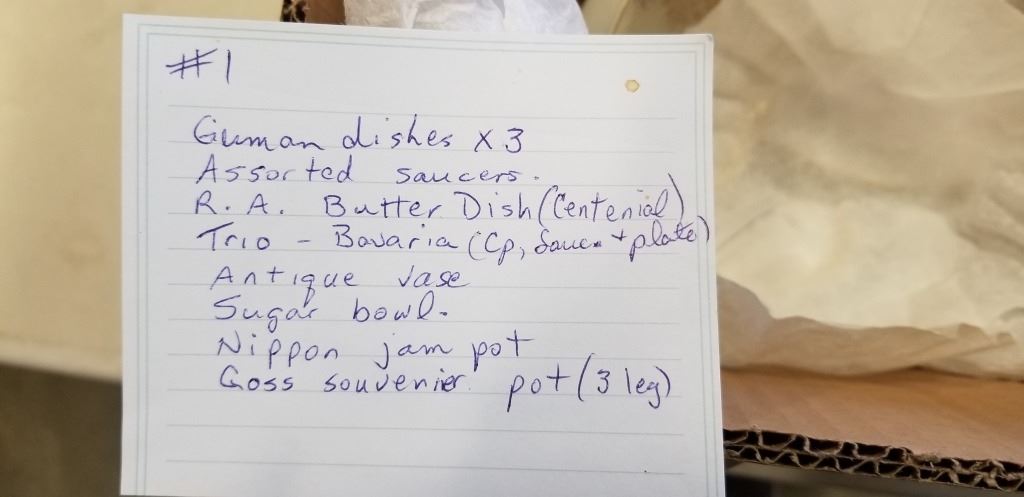 #1
German dishes x 3
Assorted saucers.
R. A. Butter Dish (Centenial)
Trio - Bavaria (Cp, Sauce + plate)
Antique vase
Sugar bowl.
Nippon jam pot
Goss souvenier pot (3 leg)